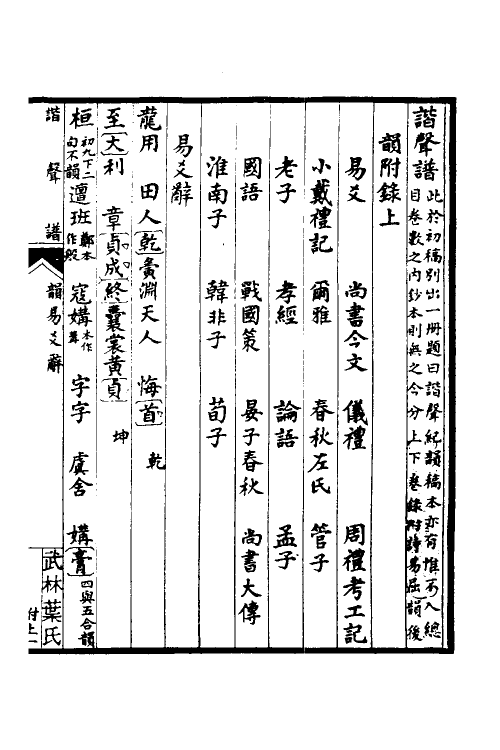 諧聲譜 此於初稿別出一冊題曰諧聲紀韻稿本亦有惟不入總目卷數之內鈔本則無之今分上下卷錄附詩易屈韻後
韻附錄上
易爻 尚書今文 儀禮 周禮考工記
小戴禮記 爾雅 春秋左氏 管子
老子 孝經 論語 孟子
國語 戰國策 晏子春秋 尚書大傳
淮南子 韓非子 荀子
易爻辭
龍用 田人乾夤淵天人 悔首 乾
至大利 章貞成終囊裳黃貞 坤
桓初九下二句不韻邅班鄭本作般 寇媾本作冓 字字 虞舍 媾膏四與五合韻
諧聲譜 韻易爻辭 武林葉氏 附上一